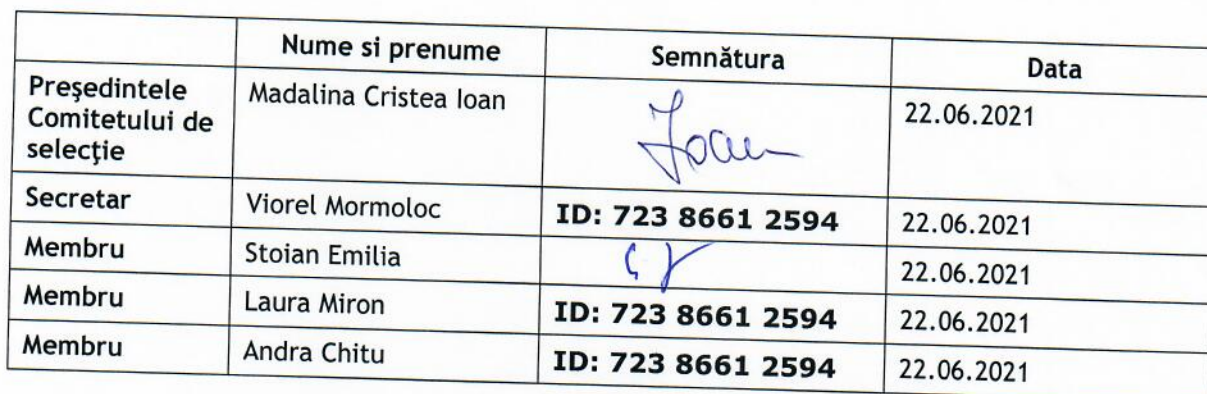 Nume si prenume Semnătura Data
Preşedintele
Comitetului de
selecţie
Madalina Cristea Ioan Ioan 22.06.2021
Secretar Viorel Mormoloc ID: 723 8661 2594 22.06.2021
Membru Stoian Emilia 22.06.2021
Membru Laura Miron ID: 723 8661 2594 22.06.2021
Membru Andra Chitu ID: 723 8661 2594 22.06.2021